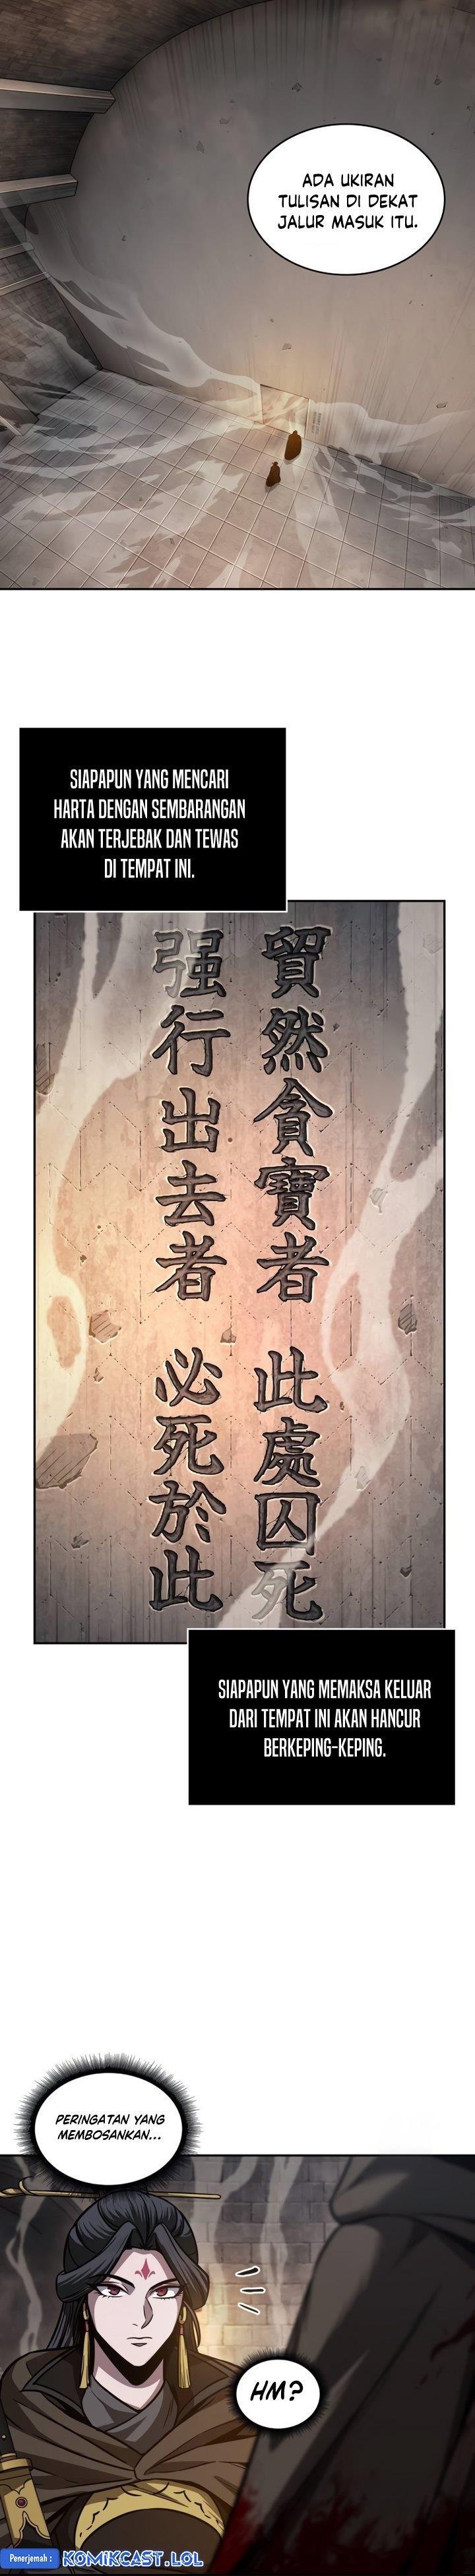 ADA UKIRAN
TULISAN DI DEKAT
JALUR MASUK ITU.
SIAPAPUN YANG MENCARI
HARTA DENGAN SEMBARANGAN
AKAN TERJEBAK DAN TEWAS
DI TEMPAT INI.
貿然貪寶者 此處囚死
强行出去者 必死於此
SIAPAPUN YANG MEMAKSA KELUAR
DARI TEMPAT INI AKAN HANCUR
BERKEPING-KEPING.
PERINGATAN YANG
MEMBOSANKAN...
HM?
Penerjemah : KOMIKCAST.LOL